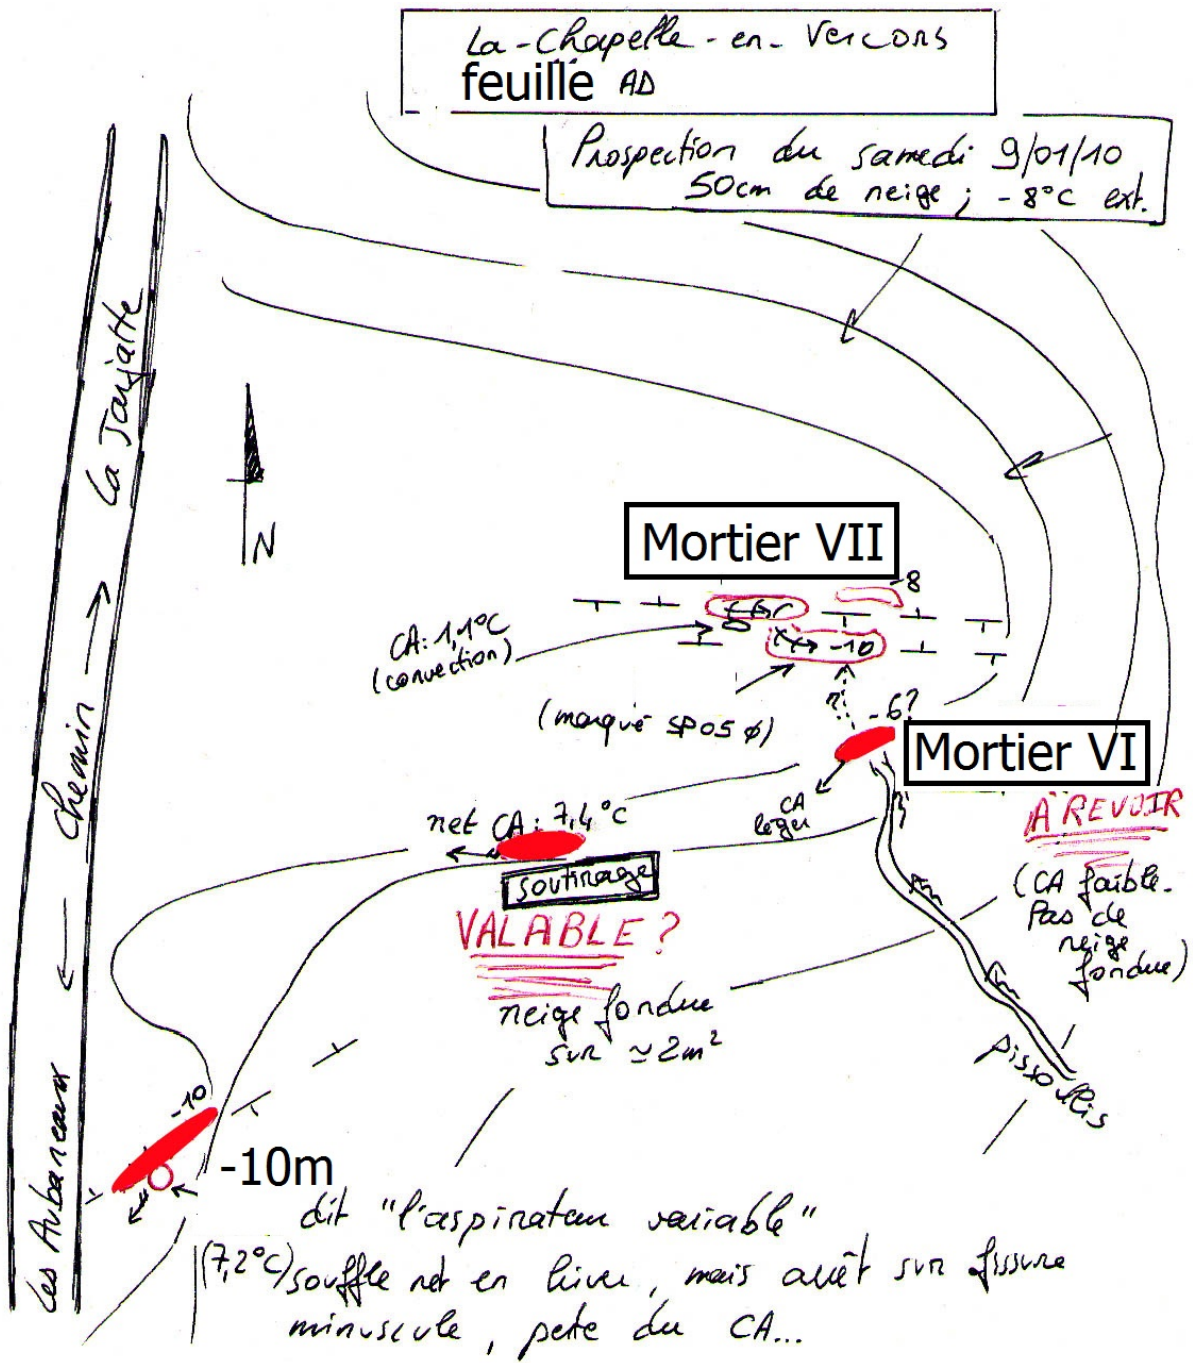 La-Chapelle-en-Vercors
feuille AD
Prospection du samedi 9/01/10
50cm de neige ; -8°C ext.
La Jarjatte
Chemin
Les Aubaneaux
N
Mortier VII
-8
-10
CA: 1,1°C
(convection)
(marqué SP05 ϕ)
?
-6?
Mortier VI
CA
léger
À REVOIR
(CA faible.
Pas de
neige
fondue)
net CA: 7,4°C
soutirage
VALABLE ?
neige fondue
sur ≃ 2m²
pissollis
-10
-10m
dit "l'aspirateur variable"
(7,2°C) souffle net en hiver, mais arrêt sur fissure
minuscule, perte du CA...